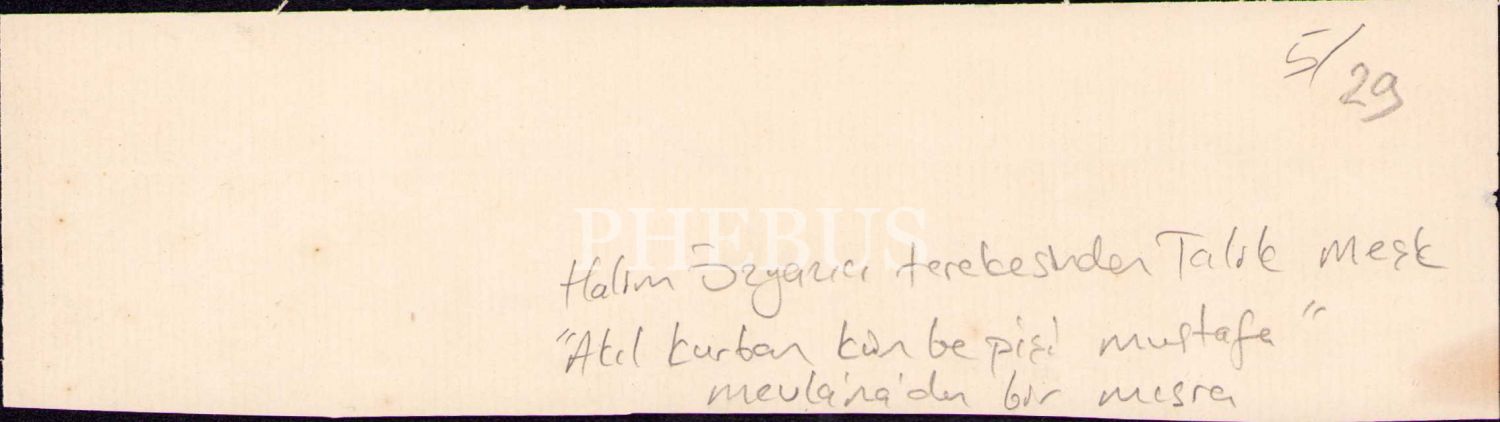 5/29
PHEBUS
Halim Özyazıcı terekesinden Talik Meşk
"Akıl kurban kün be pişi mustafa"
mevlâna'dan bir mısra